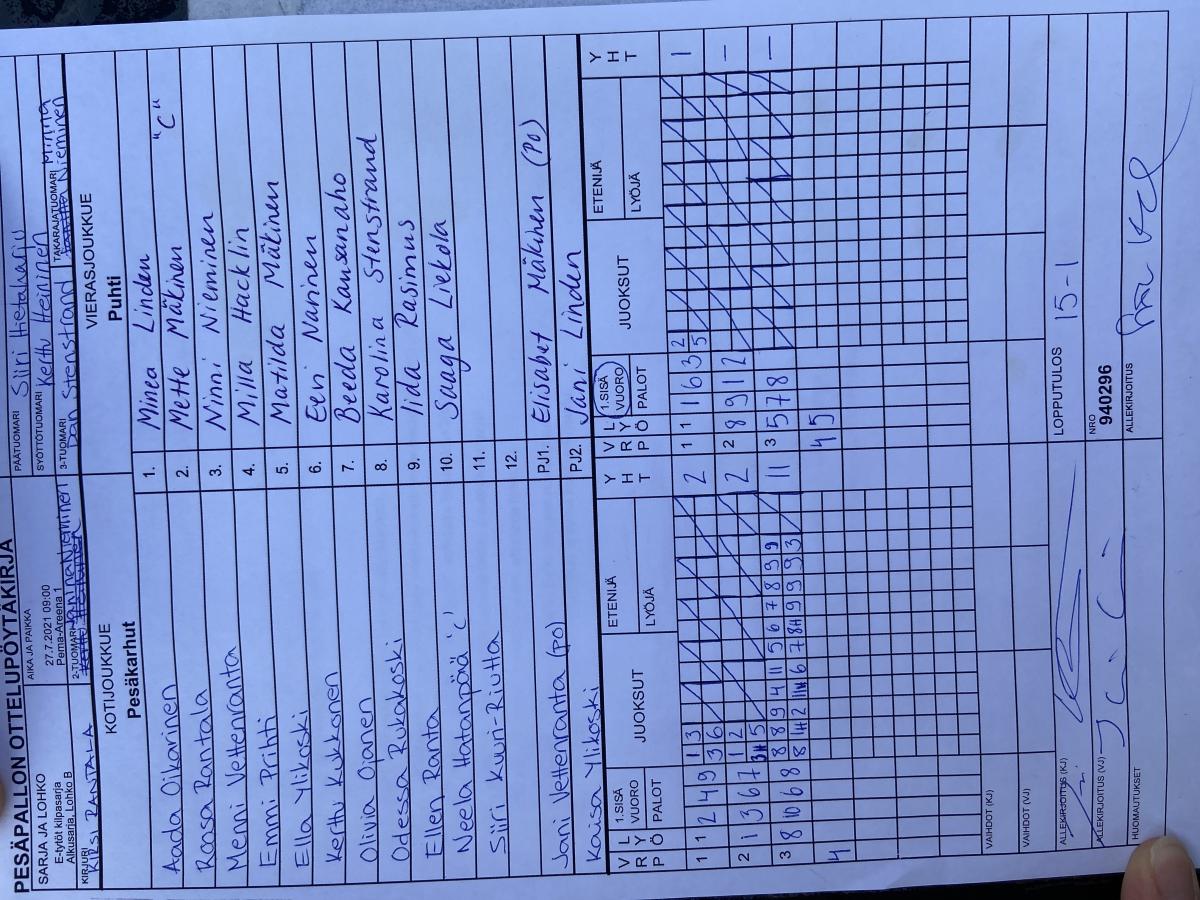 PESÄPALLON OTTELUPÖYTÄKIRJA
SARJA JA LOHKO
E-tytöt kilpasarja
Alkusarja, Lohko B
AIKA JA PAIKKA
27.7.2021 09:00
Pema-Areena 1
PÄÄTUOMARI Siiri Hietaharju
SYÖTTÖTUOMARI Kerttu Heininen
KIRJURI KIRSI RANTALA
2-TUOMARI Janina Nieminen
3-TUOMARI Dan Stenstrand
TAKARAJATUOMARI Minna Nieminen
KOTIJOUKKUE
Pesäkarhut
VIERASJOUKKUE
Puhti
Aada Oikarinen 1. Minea Linden "C"
Roosa Rantala 2. Mette Mäkinen
Menni Vettenranta 3. Ninni Nieminen
Emmi Prihti 4. Milla Hacklin
Ella Ylikoski 5. Matilda Mäkinen
Kerttu Kukkonen 6. Eevi Narinen
Olivia Ojanen 7. Beeda Kansanaho
Odessa Rukakoski 8. Karolina Stenstrand
Ellen Ranta 9. Iida Rasimus
Neela Hatanpää 'c' 10. Saaga Liekola
Siiri Kuuri-Riutta 11.
12.
Jani Vettenranta (PO) PJ1. Elisabet Mäkinen (PO)
Kaisa Ylikoski PJ2. Jani Linden
V R P L Y Ö 1.SISÄ VUORO PALOT JUOKSUT ETENIJÄ LYÖJÄ Y H T V R P L Y Ö 1.SISÄ VUORO PALOT JUOKSUT ETENIJÄ LYÖJÄ Y H T
1 1 2 4 9 1 3 2 1 1 1 6 3 2 1
3 6 5
2 1 3 6 7 1 2 2 2 8 9 1 2 –
3H 5
3 8 10 6 8 8 8 9 4 11 5 6 7 8 9 9 11 3 5 7 8 –
8 1H 2 11H 6 7 8H 9 9 9 3
4 4 5
VAIHDOT (KJ)
VAIHDOT (VJ)
ALLEKIRJOITUS (KJ)
LOPPUTULOS 15-1
ALLEKIRJOITUS (VJ)
NRO
940296
HUOMAUTUKSET
ALLEKIRJOITUS